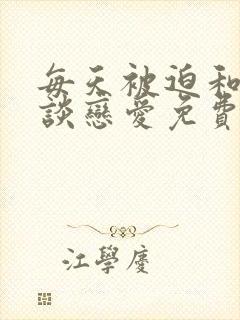 每天被迫和
談戀愛免費
江學慶